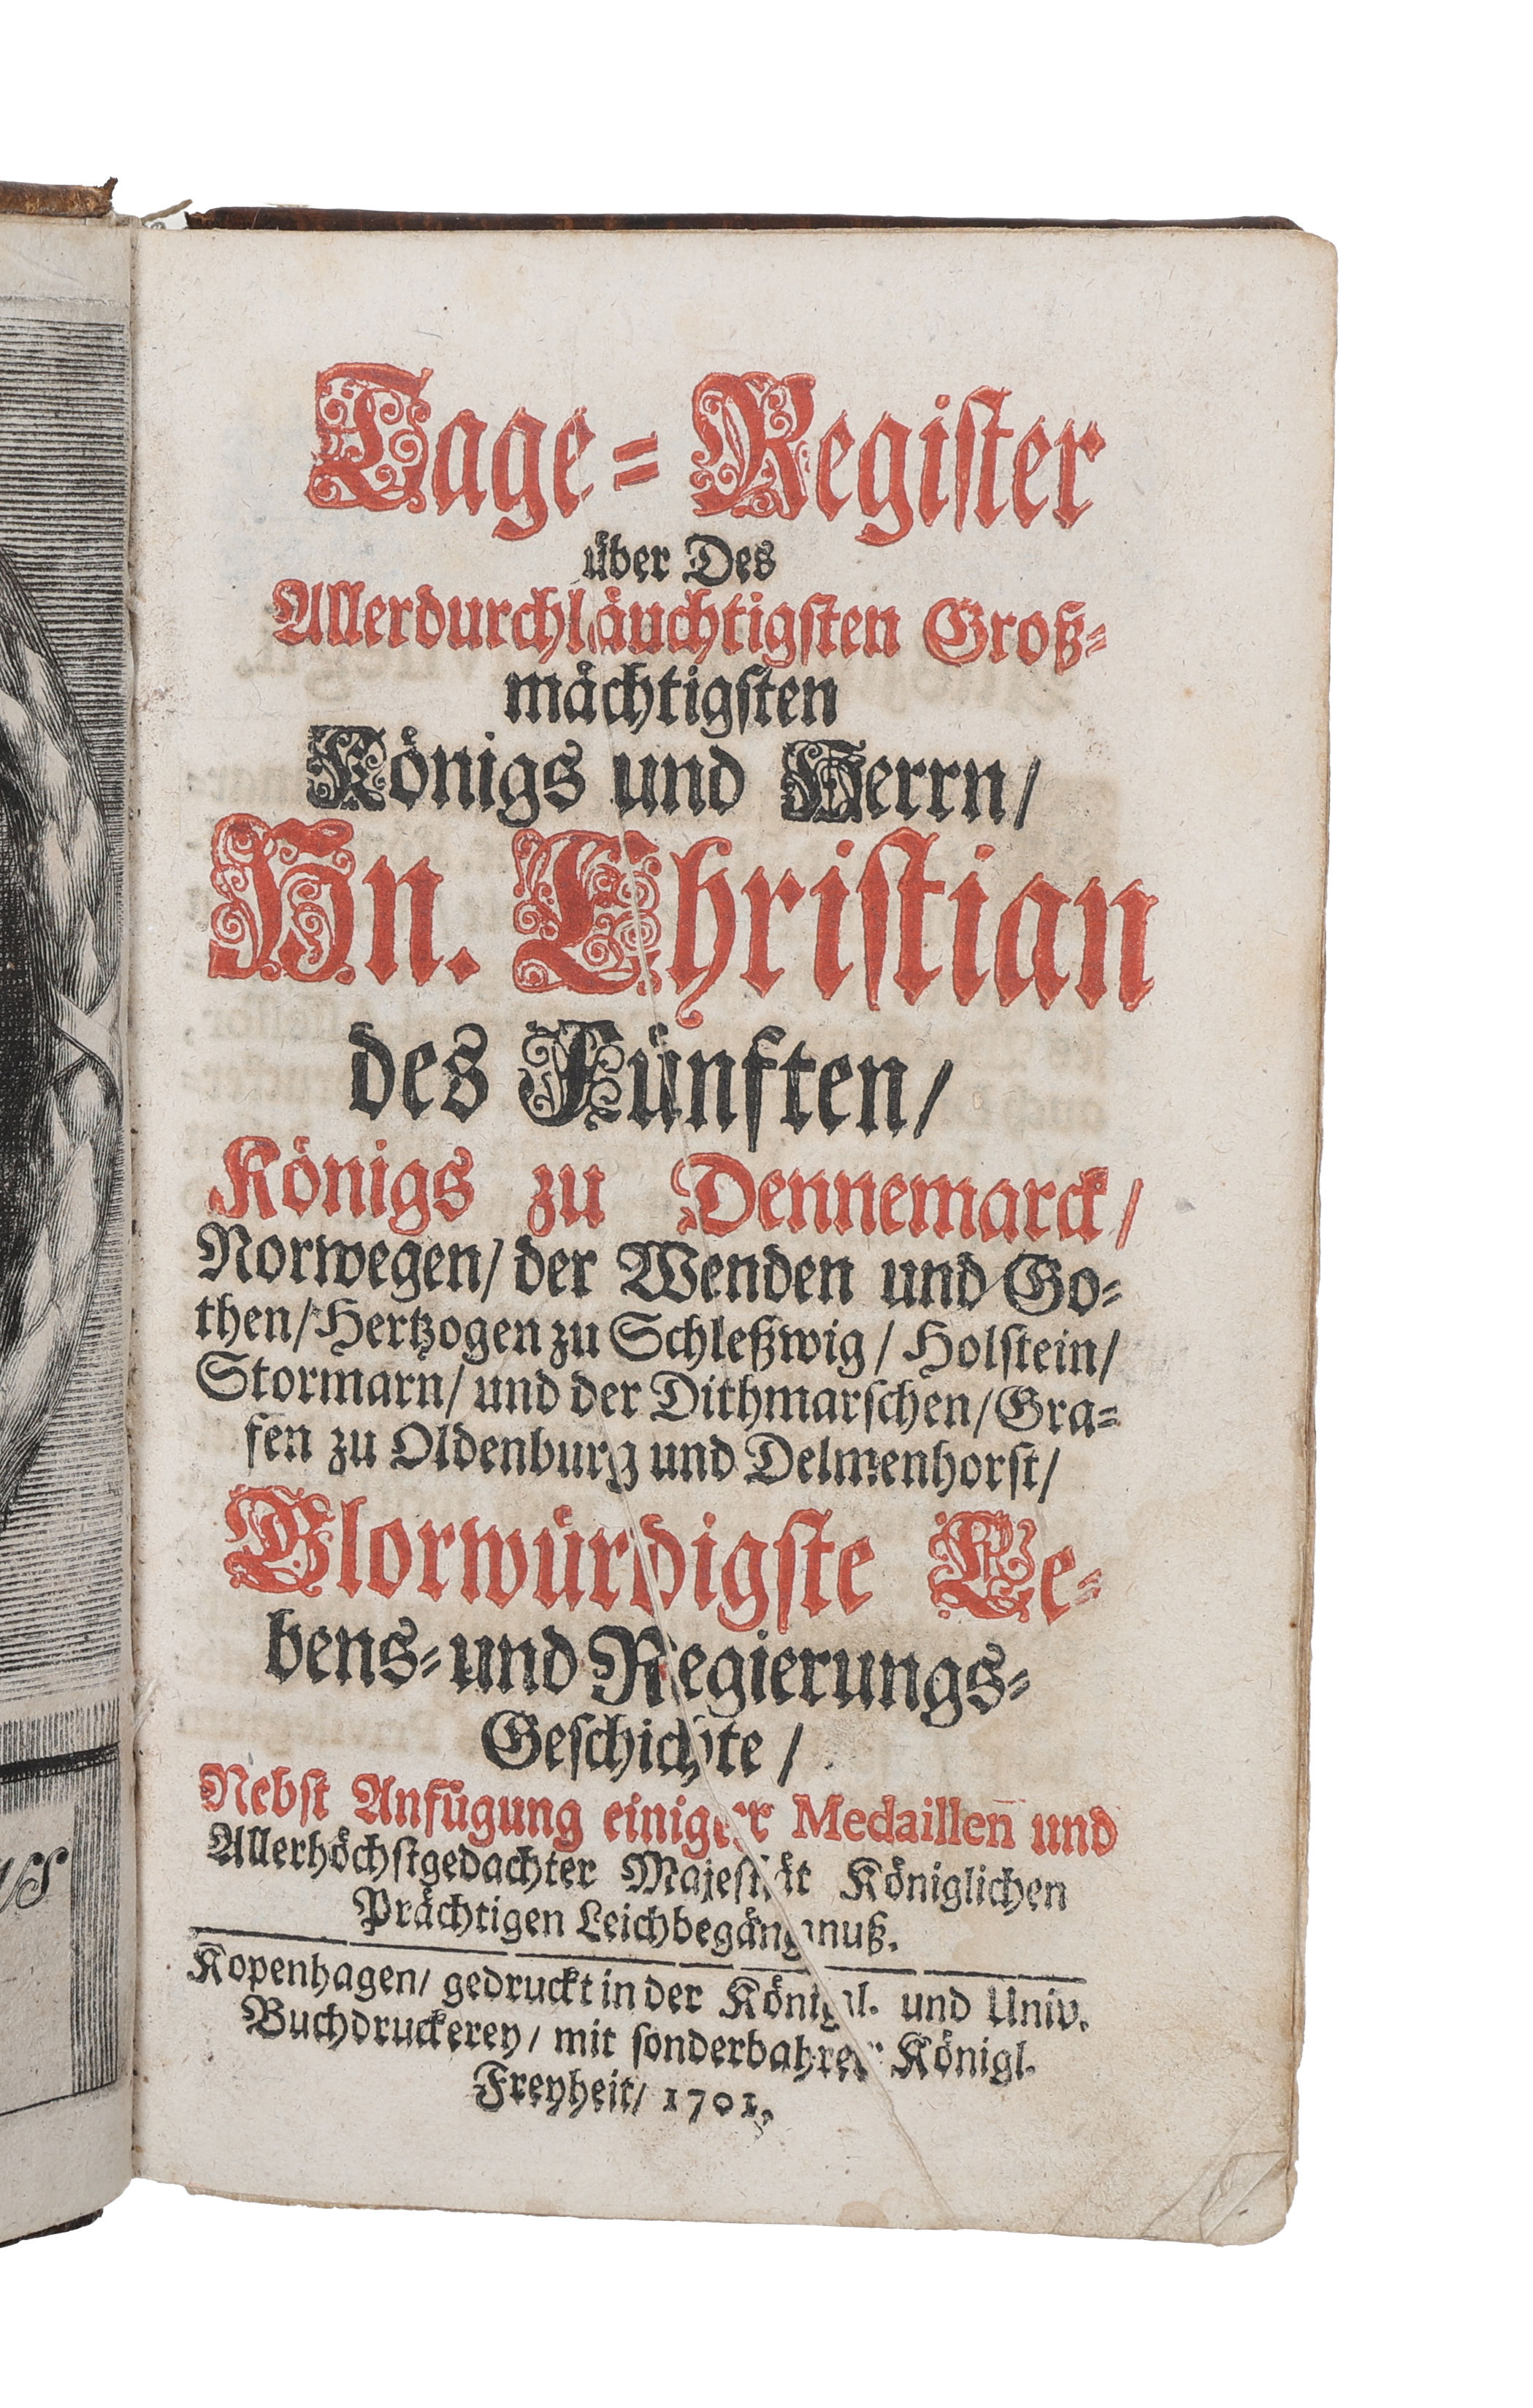 Tage-Register
über Des
Allerdurchläuchtigsten Groß-
mächtigsten
Königs und Herrn/
Hn. Christian
des Fünften/
Königs zu Dennemarck/
Norwegen/ der Wenden und Go-
then/ Hertzogen zu Schleßwig/ Holstein/
Stormarn/ und der Dithmarschen/ Gra-
fen zu Oldenburg und Delmenhorst/
Glorwürdigste Le-
bens- und Regierungs-
Geschichte/
Nebst Anfügung einiger Medaillen̄ und
Allerhöchstgedachter Majestät Königlichen
Prächtigen Leichbegängnuß.
Kopenhagen/ gedruckt in der Königl. und Univ.
Buchdruckerey/ mit sonderbahrer Königl.
Freyheit/ 1701.